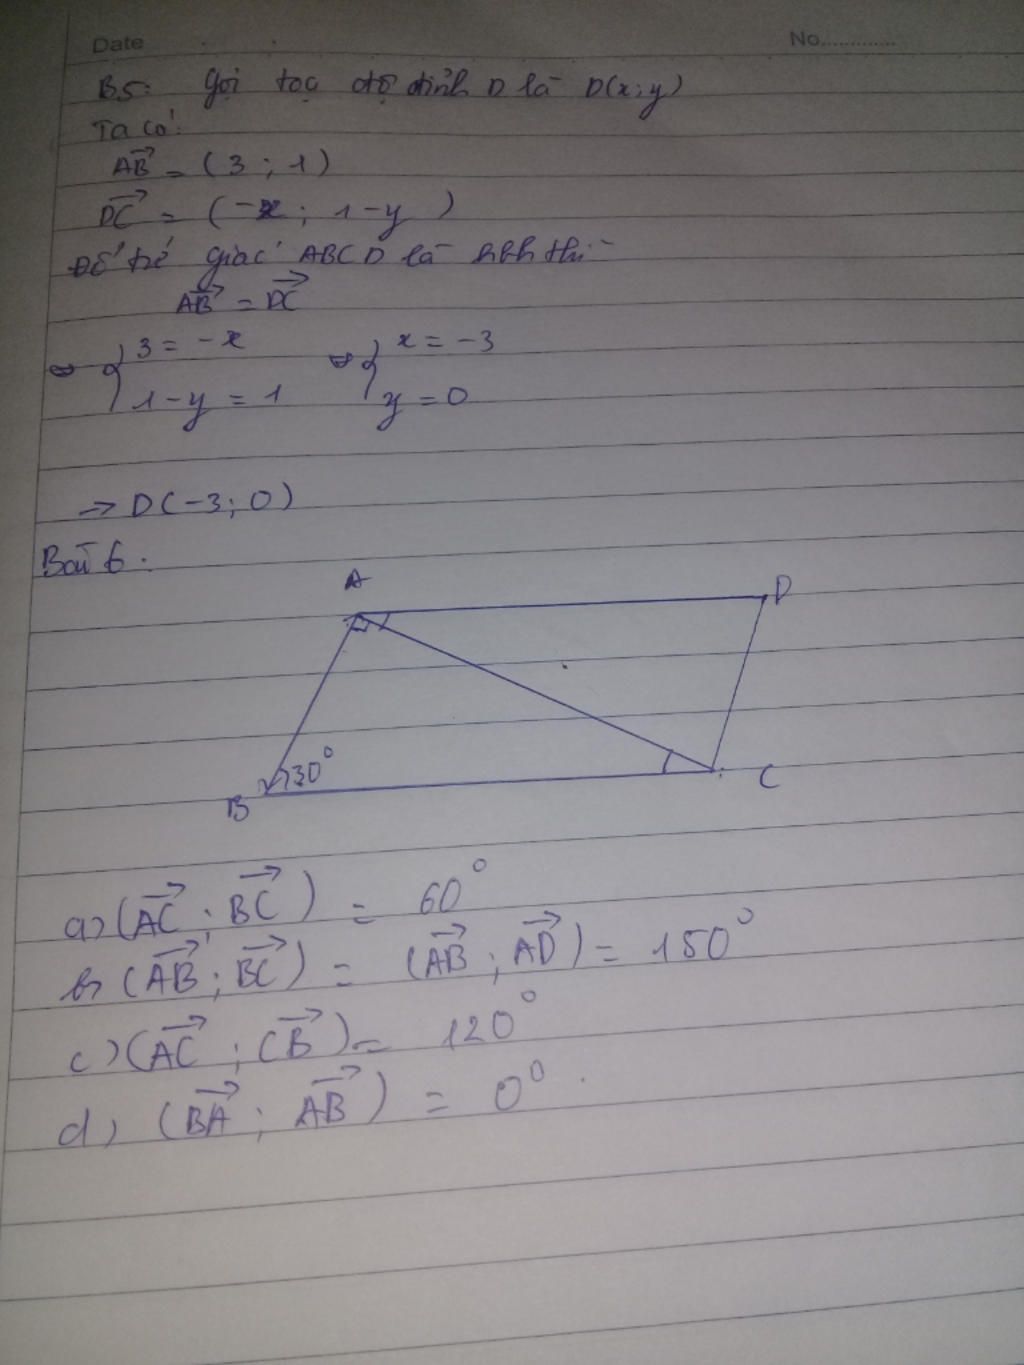 Date
No.............
B5: Gọi toạ độ đỉnh D là D(x;y)
Ta có:
AB→ = (3 ; 1)
DC→ = (-x ; 1-y )
Để tứ giác ABCD là hbh thì
AB→ = DC→
⇔ { 3 = -x ⇔ { x = -3
1-y = 1 y = 0
→ D(-3; 0)
Bài 6 :
A
D
30°
B
C
a) (AC→ ; BC→) = 60°
b) (AB→ ; BC→) = (AB→ ; AD→) = 150°
c) (AC→ ; CB→) = 120°
d) (BA→ ; AB→) = 0°.